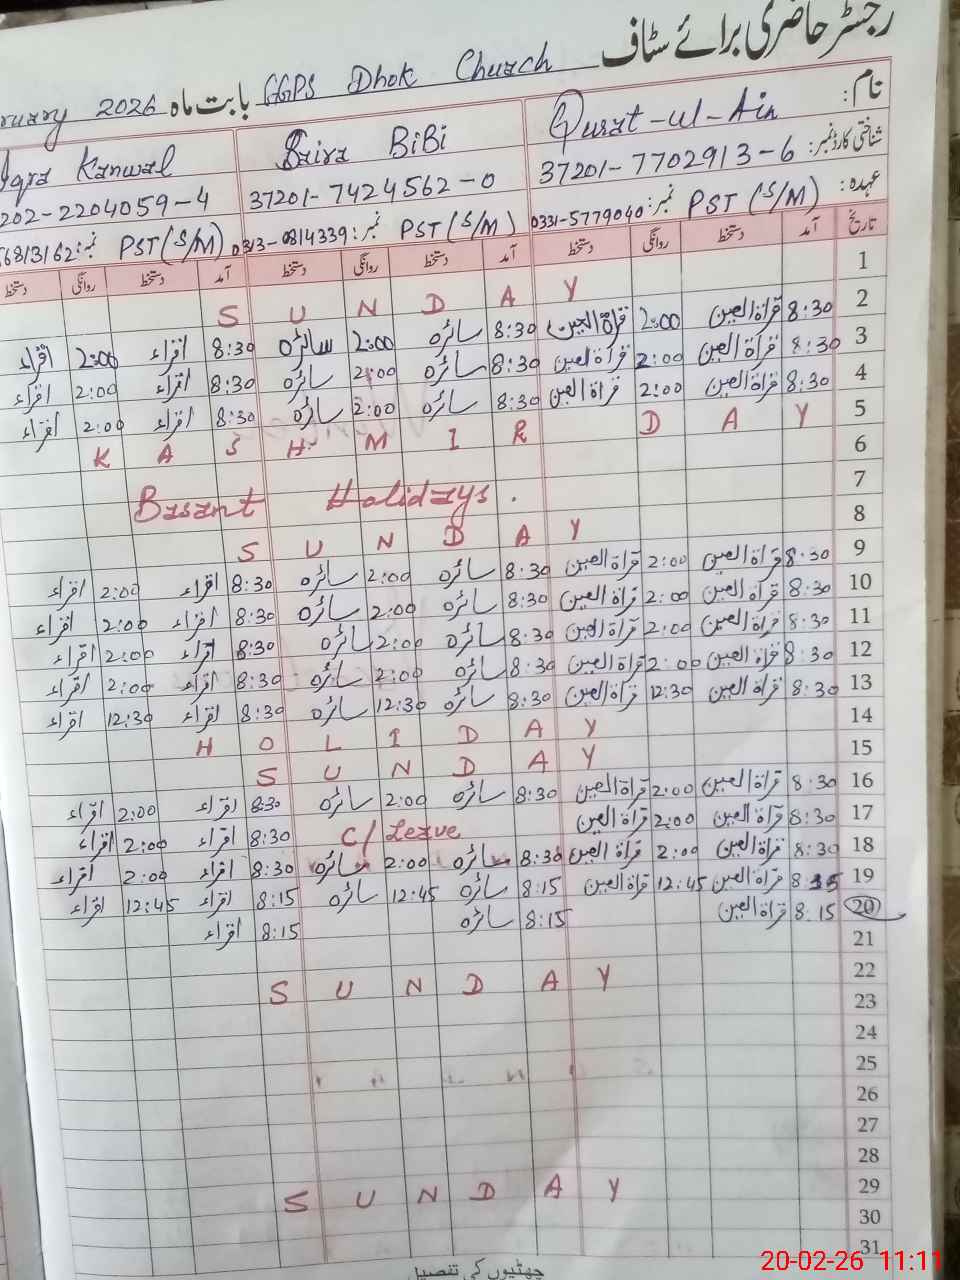 رجسٹر حاضری برائے سٹاف
GGPS Dhok Church بابت ماہ ruary 2026
نام: Qurat-ul-Ain Saira BiBi Iqra Kanwal
شناختی کارڈ نمبر: 37201-7702913-6 37201-7424562-0 202-2204059-4
عہدہ: PST (S/M) نمبر: 0331-5779040 PST (S/M) نمبر: 0313-0814339 PST (S/M) نمبر: 6813162
تاریخ آمد دستخط روانگی دستخط آمد دستخط روانگی دستخط آمد دستخط روانگی دستخط
1 S U N D A Y
2 8:30 قراۃ العین 2:00 قراۃ العین 8:30 سائرہ 2:00 سائرہ 8:30 اقراء 2:00 اقراء
3 8:30 قراۃ العین 2:00 قراۃ العین 8:30 سائرہ 2:00 سائرہ 8:30 اقراء 2:00 اقراء
4 8:30 قراۃ العین 2:00 قراۃ العین 8:30 سائرہ 2:00 سائرہ 8:30 اقراء 2:00 اقراء
5 K A S H M I R D A Y
6
7 Basant Holidays.
8 S U N D A Y
9 8:30 قراۃ العین 2:00 قراۃ العین 8:30 سائرہ 2:00 سائرہ 8:30 اقراء 2:00 اقراء
10 8:30 قراۃ العین 2:00 قراۃ العین 8:30 سائرہ 2:00 سائرہ 8:30 اقراء 2:00 اقراء
11 8:30 قراۃ العین 2:00 قراۃ العین 8:30 سائرہ 2:00 سائرہ 8:30 اقراء 2:00 اقراء
12 8:30 قراۃ العین 2:00 قراۃ العین 8:30 سائرہ 2:00 سائرہ 8:30 اقراء 2:00 اقراء
13 8:30 قراۃ العین 12:30 قراۃ العین 8:30 سائرہ 12:30 سائرہ 8:30 اقراء 12:30 اقراء
14 H O L I D A Y
15 S U N D A Y
16 8:30 قراۃ العین 2:00 قراۃ العین 8:30 سائرہ 2:00 سائرہ 8:30 اقراء 2:00 اقراء
17 8:30 قراۃ العین 2:00 قراۃ العین C/Leave 8:30 اقراء 2:00 اقراء
18 8:30 قراۃ العین 2:00 قراۃ العین 8:30 سائرہ 2:00 سائرہ 8:30 اقراء 2:00 اقراء
19 قراۃ العین 12:45 قراۃ العین 8:15 سائرہ 12:45 سائرہ 8:15 اقراء 12:45 اقراء
20 8:15 قراۃ العین 8:15 سائرہ 8:15 اقراء
21
22 S U N D A Y
23
24
25
26
27
28
29 S U N D A Y
30
31
چھٹیوں کی تفصیل
20-02-26 11:11